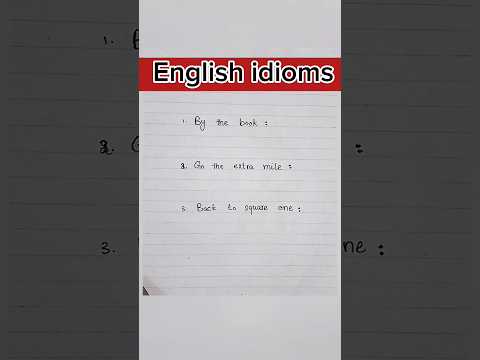 English idioms
1. By the book :
2. Go the extra mile :
3. Back to square one :